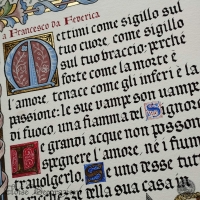 a Francesco da Federica
Mettimi come sigillo sul
tuo cuore, come sigillo
sul tuo braccio; perché
forte come la morte è
l'amore, tenace come gli inferi è la
passione: le sue vampe son vampe
di fuoco, una fiamma del Signore
Le grandi acque non posson
spegnere l'amore, né i fiumi
travolgerlo. Se uno desse tutte
le ricchezze della sua casa in